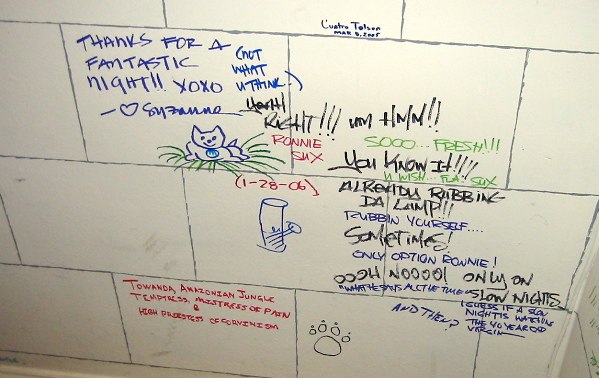 Cuatro Tolson
MAR 5, 2005
THANKS FOR A
FANTASTIC
NIGHT!! XOXO
—♡ Suzanne
(NOT
WHAT
U THINK)
RIGHT!!! UM HMM!!
RONNIE
SUX
SOOO... FRESH!!!
YOU KNOW IT!!!!
U WISH... FLA. SUX
(1-28-06)
ALREADY RUBBING
DA LAMP!!!
RUBBIN YOURSELF....
SOMETIMES!
ONLY OPTION RONNIE!
OOOH NOOOO! ONLY ON
SLOW NIGHTS
"WHAT HE SAYS ALL THE TIME"
AND THEN
I GUESS IF A SLOW
NIGHT IS WATCHING
THE 40 YEAR OLD
VIRGIN
TOWANDA, AMAZONIAN JUNGLE
TEMPTRESS, MISTRESS OF PAIN
&
HIGH PRIESTESS OF CORVINISM